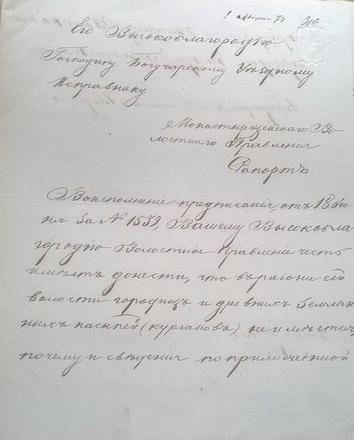 Его Высокоблагородію
Господину Богучарскому Уѣздному
Исправнику
Монастырщенскаго Во-
лостнаго Правленія
Рапортъ.
Во исполненіе предписанія, отъ 18 Iю-
ня за № 1539, Вашему Высокобла-
городію Волостное Правленіе честь
имѣетъ донести, что въ раіонѣ сей
волости городищъ и древнихъ Землян-
ныхъ насыпей (кургановъ) не имѣется,
почему и свѣдѣнія по приложенной